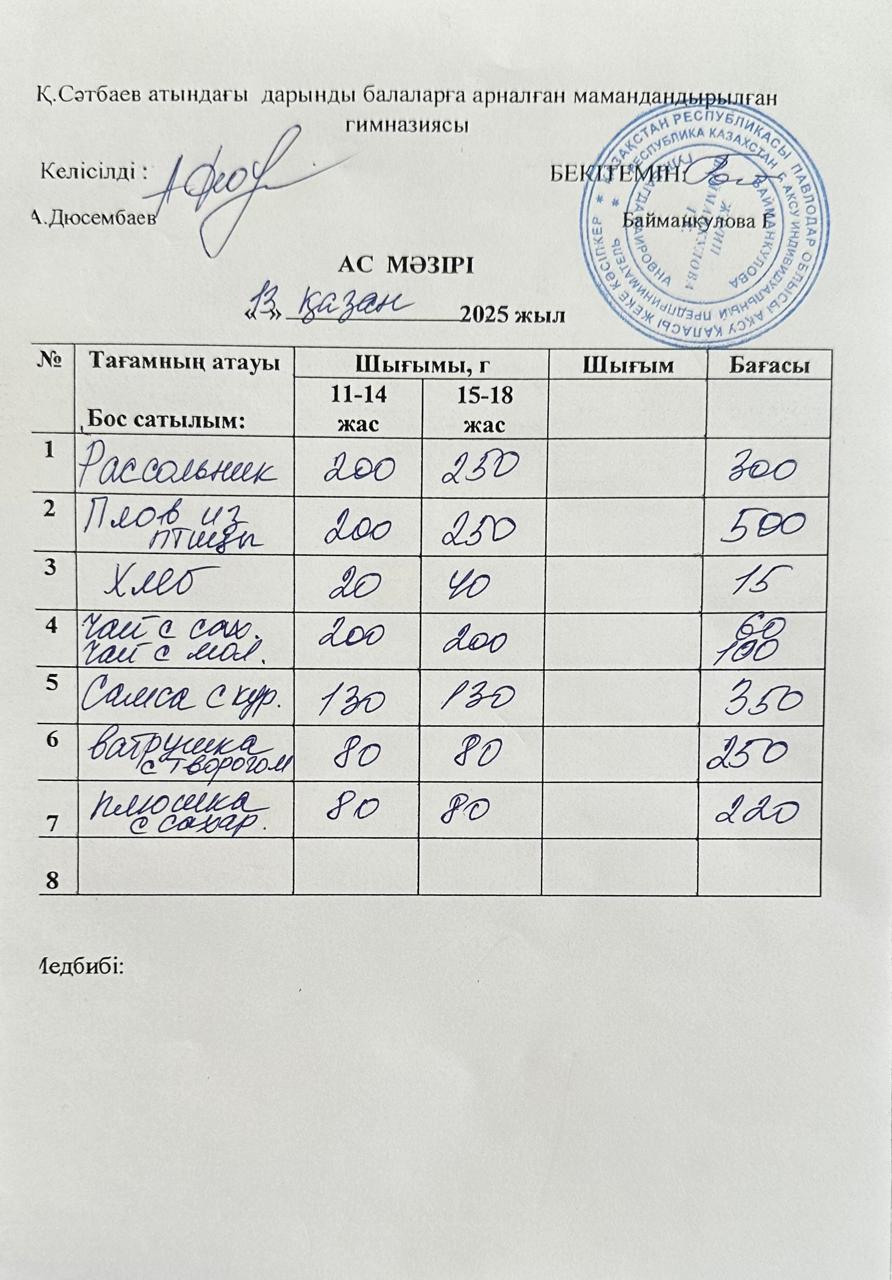 Қ.Сәтбаев атындағы дарынды балаларға арналған мамандандырылған
гимназиясы
Келісілді :
БЕКІТЕМІН:
А.Дюсембаев
Байманкулова Г
ҚАЗАҚСТАН РЕСПУБЛИКАСЫ ПАВЛОДАР ОБЛЫСЫ АҚСУ ҚАЛАСЫ ЖЕКЕ КӘСІПКЕР
РЕСПУБЛИКА КАЗАХСТАН г. АКСУ ИНДИВИДУАЛЬНЫЙ ПРЕДПРИНИМАТЕЛЬ
БАЙМАНКУЛОВА
АС МӘЗІРІ
«13» қазан 2025 жыл
№ Тағамның атауы Шығымы, г Шығым Бағасы
Бос сатылым: 11-14 жас 15-18 жас
1 Рассольник 200 250 300
2 Плов из
птицы 200 250 500
3 Хлеб 20 40 15
4 Чай с сах. 200 200 60
Чай с мол. 100
5 Самса с кур. 130 130 350
6 Ватрушка
с творогом 80 80 250
7 плюшка
с сахар. 80 80 220
8
Медбибі: